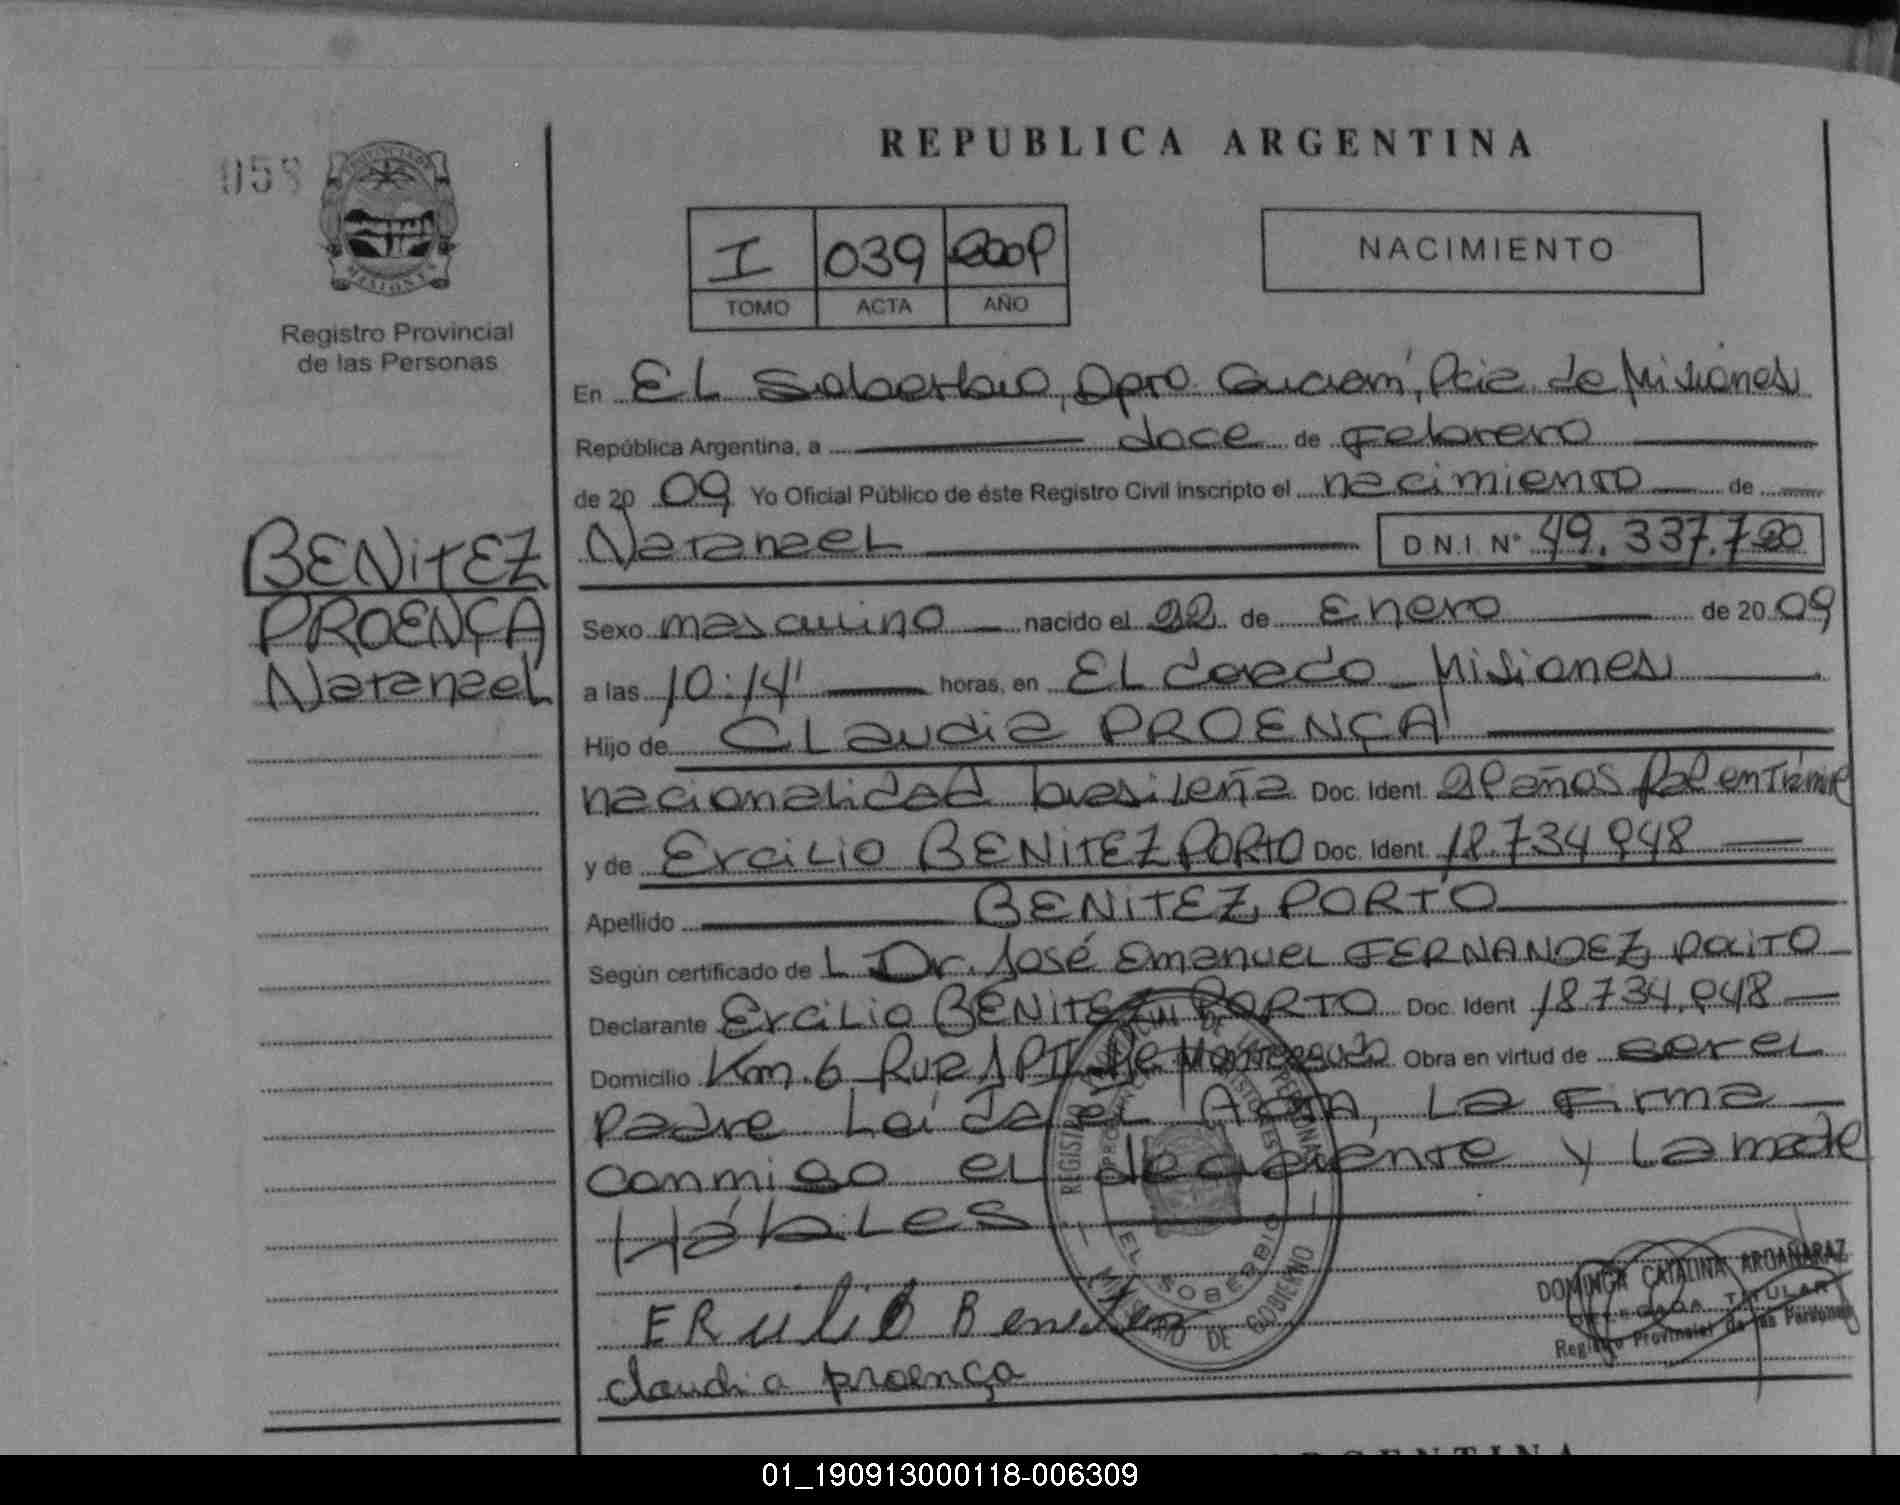 REPUBLICA ARGENTINA
058
I 039 2009
TOMO ACTA AÑO
NACIMIENTO
Registro Provincial
de las Personas
BENITEZ
PROENÇA
Natanael
En EL Soberbio, Dpto. Guaraní, Pcia de Misiones
República Argentina, a doce de Febrero
de 2009 Yo Oficial Público de éste Registro Civil inscripto el nacimiento de
Natanael D.N.I. Nº 49.337.720
Sexo masculino nacido el 22 de Enero de 2009
a las 10:14' horas, en ELdorado Misiones
Hijo de CLaudia PROENÇA
nacionalidad brasileña Doc. Ident. años en Trámite
y de Ercilio BENITEZ PORTO Doc. Ident. 18.734.948
Apellido BENITEZ PORTO
Según certificado de L Dr. José Emanuel FERNANDEZ
Declarante Ercilio BENITEZ PORTO Doc. Ident 18.734.948
Domicilio Km. 6 Ruta Obra en virtud de ser el
padre Leída el Acta, La Firma
conmigo el declarante y La madre
Hábiles
ERcilio Benitez
claudia proença
REGISTRO PROVINCIAL DE LAS PERSONAS
EL SOBERBIO
MINISTERIO DE GOBIERNO
DOMINGA CATALINA ARGAÑARAZ
DELEGADA TITULAR
Registro Provincial de las Personas
ARGENTINA
01_190913000118-006309